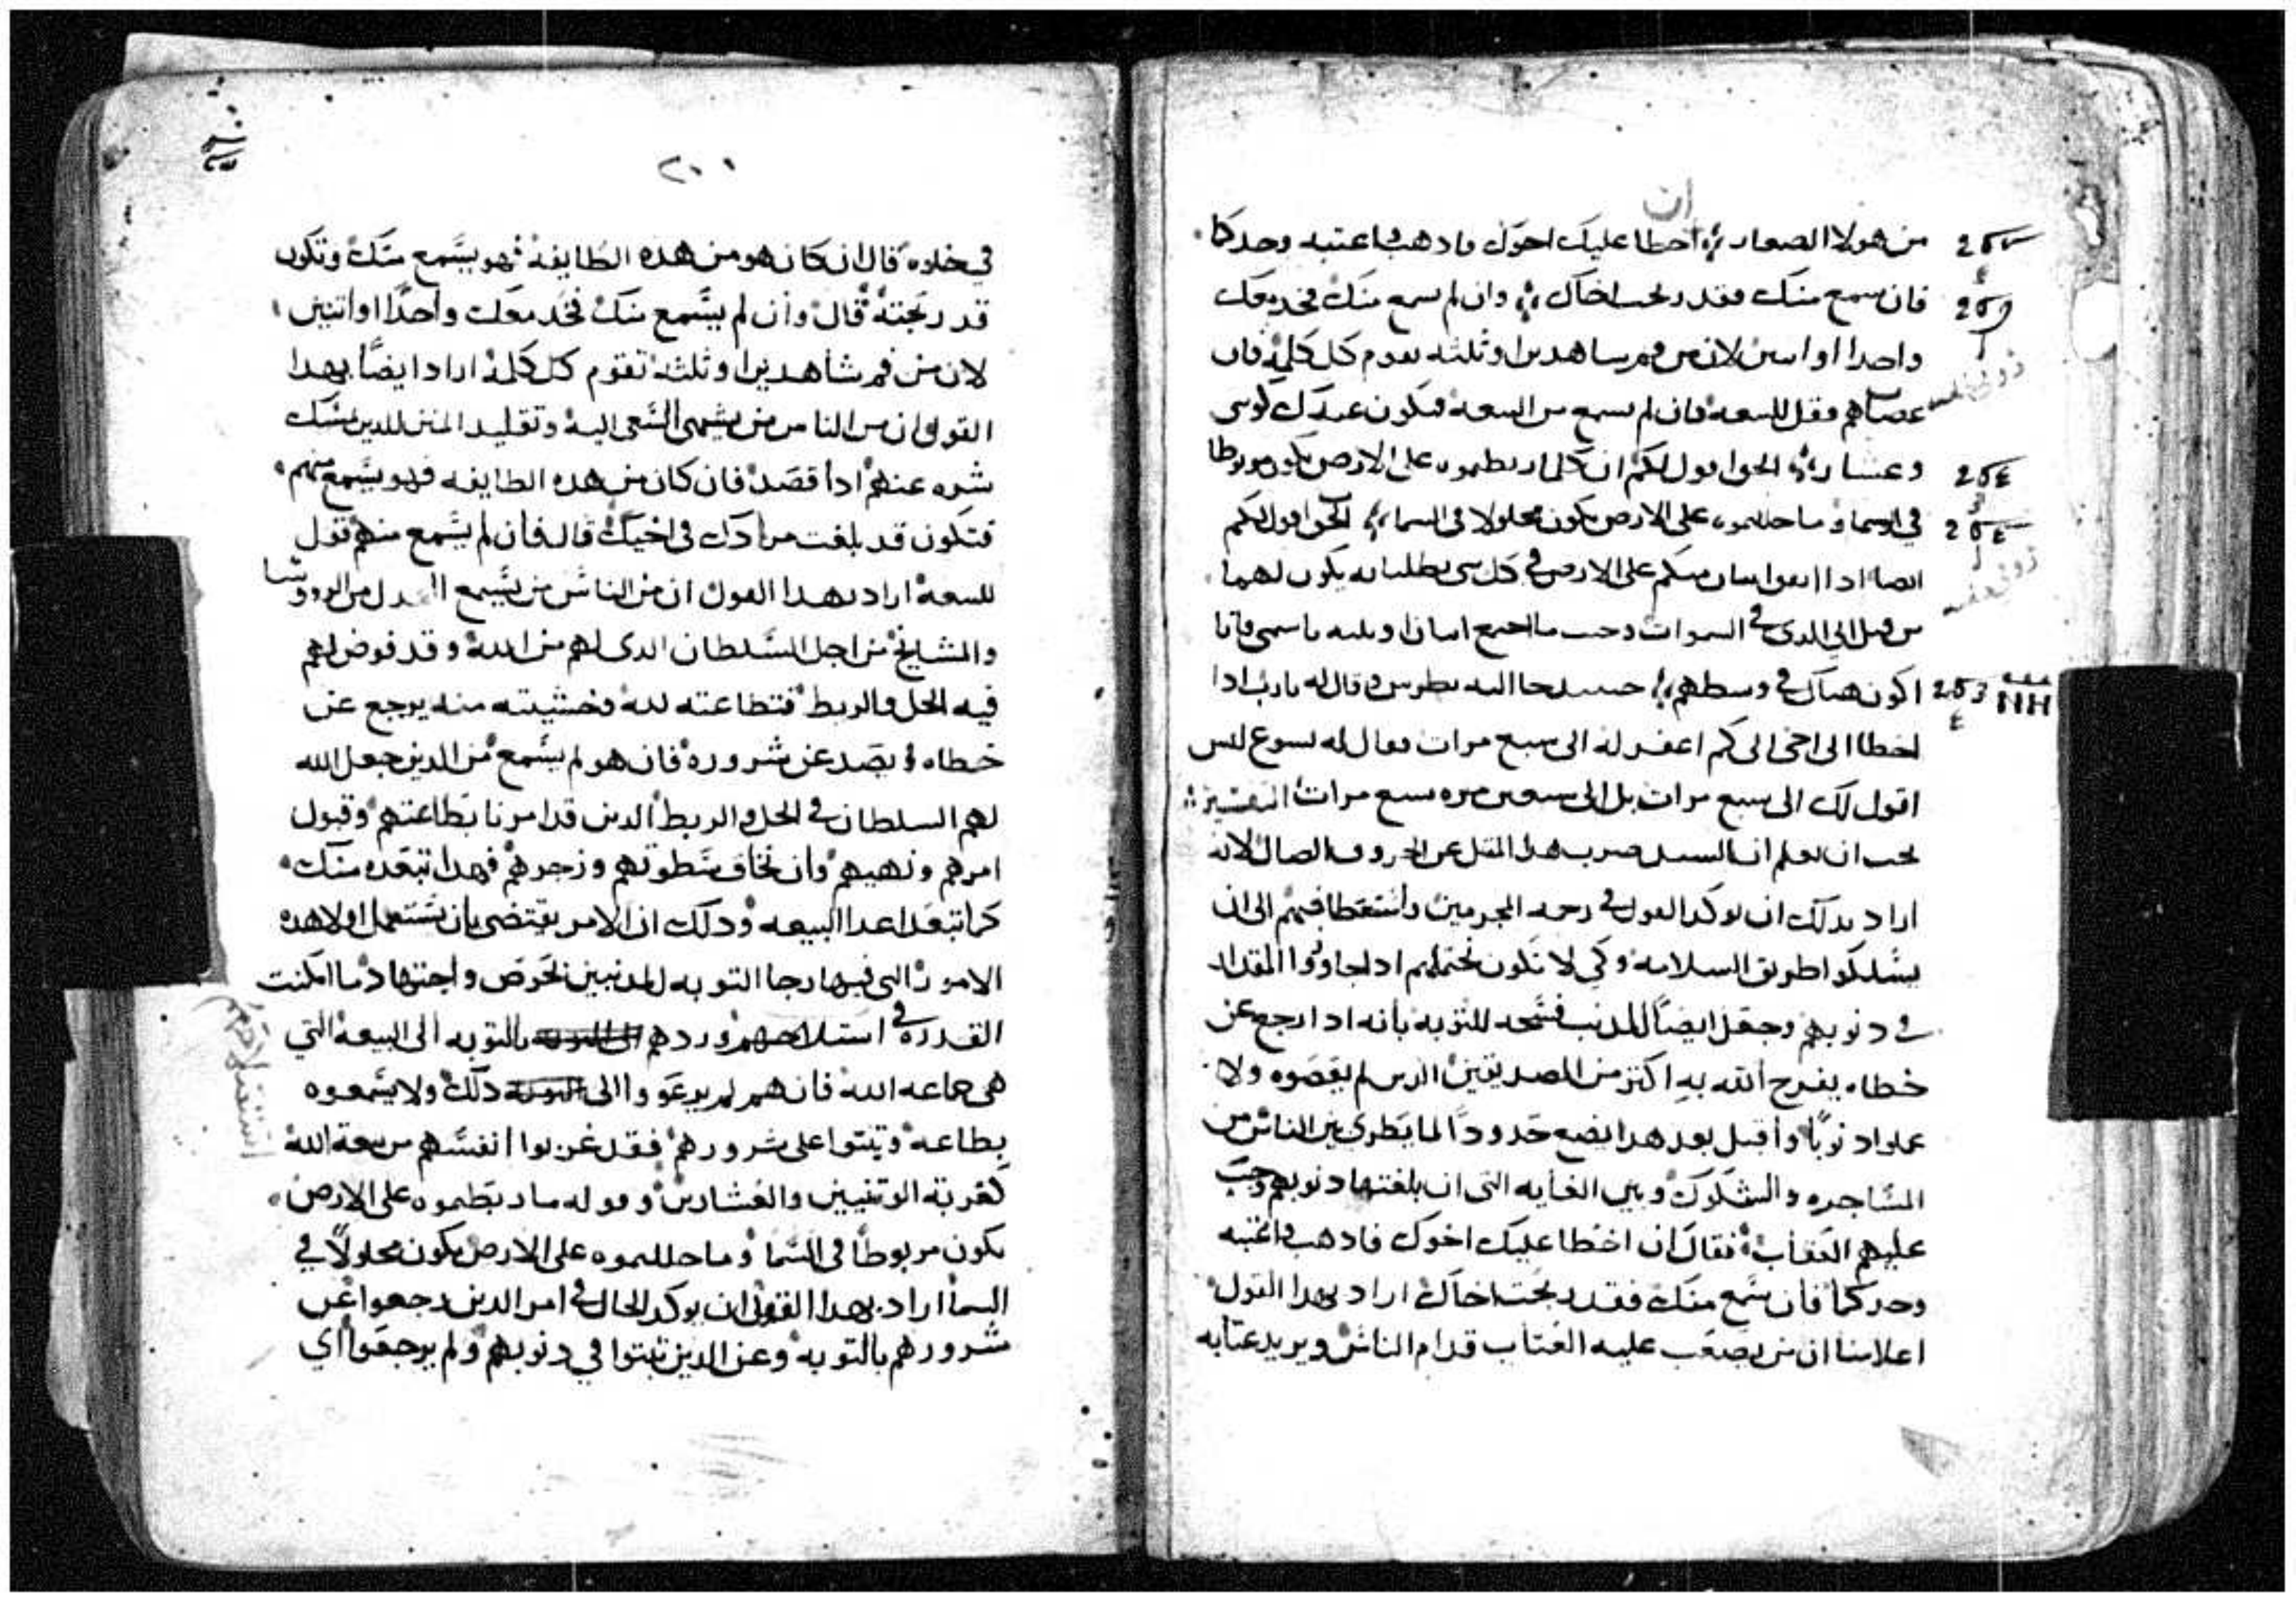 ان
من هولا الصغار احطا عليك احوك فادهب فاعتبه وحدكما
فان سمع منك فقد ربحت اخاك وان لم سمع منك فخد معك
واحدا او اسن لان من فم ساهدين او ثلثه تقوم كل كلمه فان
عصاهم فقل للبيعه فان لم يسمع من البيعه فيكون عندك كوسى
وعشار الحق اقول لكم ان كلما ربطموه على الارض يكون مربوطا
في السما وما حللموه على الارض يكون محلولا في السما الحق اقول لكم
ايضا ادا اتفق اسان منكم على الارض في كل شى يطلبانه يكون لهما
من قبل ابي الدى في السموات وحيث ما اجتمع اسان او ثلثه باسمى فانا
اكون هناك في وسطهم حينيد جا اليه بطرس وقال له يارب ادا
اخطا الى اخى الى كم اغفر له الى سبع مرات فقال له يسوع ليس
اقول لك الى سبع مرات بل الى سبعين مره سبع مرات التفسير
يجب ان نعلم ان السيد ضرب هدا المثل عن الخروف الضال لانه
اراد بدلك ان يوكد القول في رحمه المجرمين واستعطافهم الى ان
يسلكوا طريق السلامه وكي لا تكون تحتملهم ادا جاوزوا المقدار
في دنوبهم وجعل ايضا للمدنب فسحه للتوبه بانه ادا رجع عن
خطاه يفرح الله به اكثر من الصديقين الدين لم يعصوه ولا
عملوا دنوبا واقبل بعد هدا يضع حدودا لما يطرى بين الناس من
المشاجره والشكوك وبين الغايه التى ان بلغتها دنوبهم وجب
عليهم العقاب فقال ان اخطا عليك اخوك فادهب فاعتبه
وحدكما فان سمع منك فقد ربحت اخاك اراد بهدا القول
اعلامنا ان من يصعب عليه العتاب قدام الناس ويريد عتابه
٢٠١
في خلوه قال ان كان هو من هده الطايفه فهو يسمع منك وتكون
قد ربحته قال وان لم يسمع منك فخد معك واحدا او اتنين
لان من فم شاهدين او ثلثه تقوم كل كلمه اراد ايضا بهدا
القول ان من الناس من يشتهى السعى اليه وتقليد المنن للدين يمسك
شره عنهم ادا قصد فان كان من هده الطايفه فهو يسمع منهم
فتكون قد بلغت مرادك في اخيك قال فان لم يسمع منهم قول
للبيعه اراد بهدا القول ان من الناس من يسمع من الرووسا
والمشايخ من اجل السلطان الدى لهم من الله وقد فوض لهم
فيه الحل والربط فتطاعته لله وخشيته منه يرجع عن
خطاه ويصد عن شروره فان هو لم يسمع من الدين جعل الله
لهم السلطان في الحل والربط الدين قد امرنا بطاعتهم وقبول
امرهم ونهيهم وان نخاف سطوتهم وزجرهم فهدا تبعده منك
كما تبعد اعدا البيعه ودلك ان الامر يقتضى بان نستعمل اولا هده
الامور التى فيها رجا التوبه للمدنبين بحرص واجتهاد ما امكنت
القدره في استلاحهم وردهم بالتوبه الى البيعه التي
هى جماعه الله فان هم لم يرعووا الى دلك ولا يسمعوه
بطاعه وتبتوا على شرورهم فقد غربوا انفسهم من بيعة الله
كغربة الوتنيين والعشارين وقوله ما ربطموه على الارض
يكون مربوطا في السما وما حللموه على الارض يكون محلولا في
السما اراد بهدا القول ان يوكد الحال في امر الدين رجعوا عن
شرورهم بالتوبه وعن الدين تبتوا في دنوبهم ولم يرجعوا اى